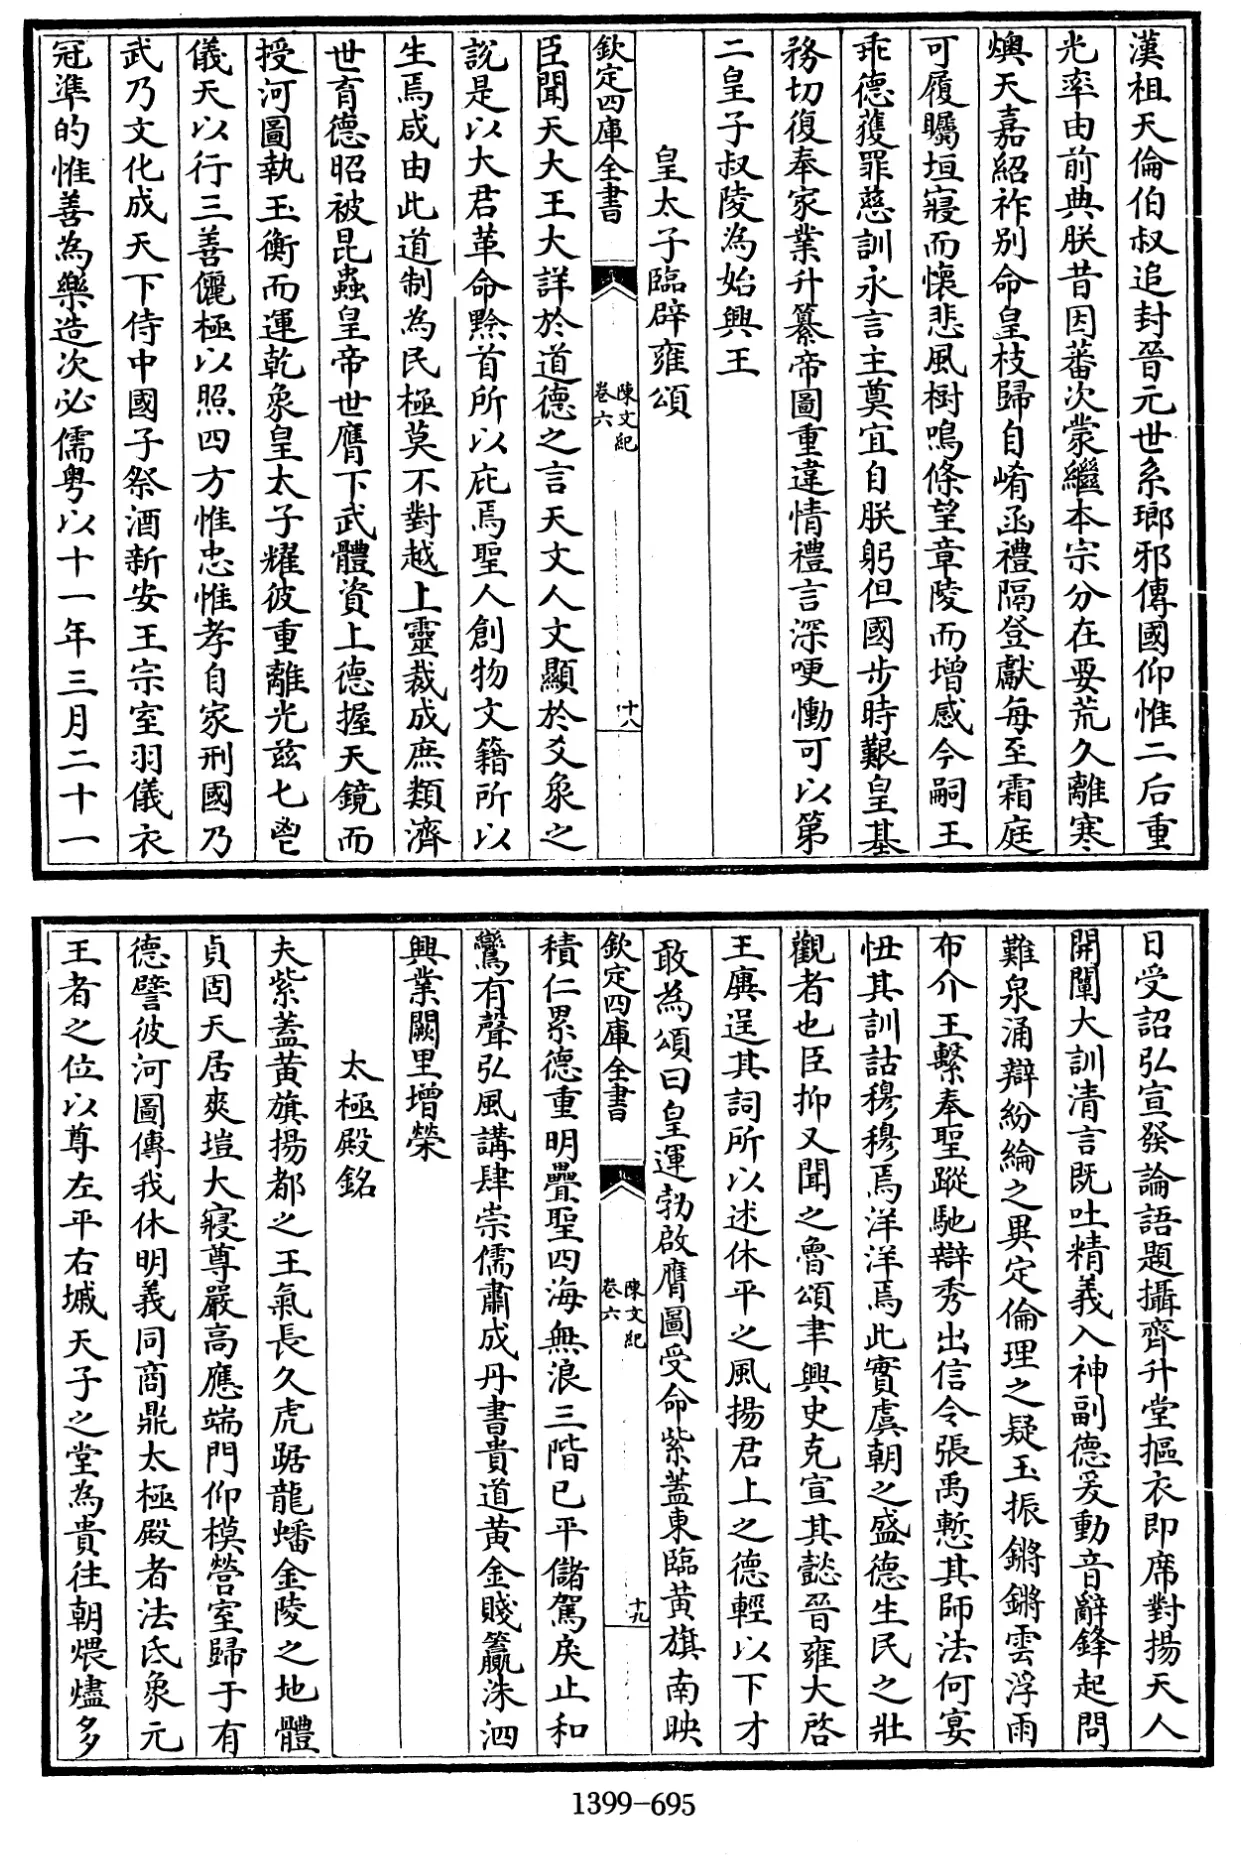 漢祖天倫伯叔追封晉元世系瑯邪傳國仰惟二后重
光率由前典朕昔因蕃次蒙繼本宗分在要荒久離寒
燠天嘉紹祚别命皇枝歸自崤函禮隔登獻每至霜庭
可履矚垣寢而懷悲風樹鳴條望章陵而增感今嗣王
乖德獲罪慈訓永言主奠宜自朕躬但國步時艱皇基
務切復奉家業升纂帝圖重違情禮言深哽慟可以第
二皇子叔陵為始興王
皇太子臨辟雍頌
欽定四庫全書
陳文紀
卷六
十八
臣聞天大王大詳於道德之言天文人文顯於爻象之
說是以大君革命黔首所以庇焉聖人創物文籍所以
生焉咸由此道制為民極莫不對越上靈裁成庶類濟
世育德昭被昆蟲皇帝世膺下武體資上德握天鏡而
授河圖執玉衡而運乾象皇太子耀彼重離光兹七鬯
儀天以行三善儷極以照四方惟忠惟孝自家刑國乃
武乃文化成天下侍中國子祭酒新安王宗室羽儀衣
冠準的惟善為樂造次必儒粤以十一年三月二十一
日受詔弘宣發論語題攝齊升堂摳衣即席對揚天人
開闡大訓清言既吐精義入神副德爰動音辭鋒起問
難泉涌辯紛綸之異定倫理之疑玉振鏘鏘雲浮雨
布介王繫奉聖蹤馳辯秀出信令張禹慙其師法何宴
忸其訓詁穆穆焉洋洋焉此實虞朝之盛德生民之壯
觀者也臣抑又聞之魯頌聿興史克宣其懿晉雍大啓
王廙逞其詞所以述休平之風揚君上之德輕以下才
敢為頌曰皇運勃啟膺圖受命紫蓋東臨黄旗南映
欽定四庫全書
陳文紀
卷六
十九
積仁累德重明疊聖四海無浪三階已平儲駕戾止和
鸞有聲弘風講肆崇儒肅成丹書貴道黄金賤籯洙泗
興業闕里增榮
太極殿銘
夫紫蓋黄旗揚都之王氣長久虎踞龍蟠金陵之地體
貞固天居爽塏大寢尊嚴高應端門仰模營室歸于有
德譬彼河圖傳我休明義同商鼎太極殿者法氐象元
王者之位以尊左平右墄天子之堂為貴往朝煨燼多
1399-695